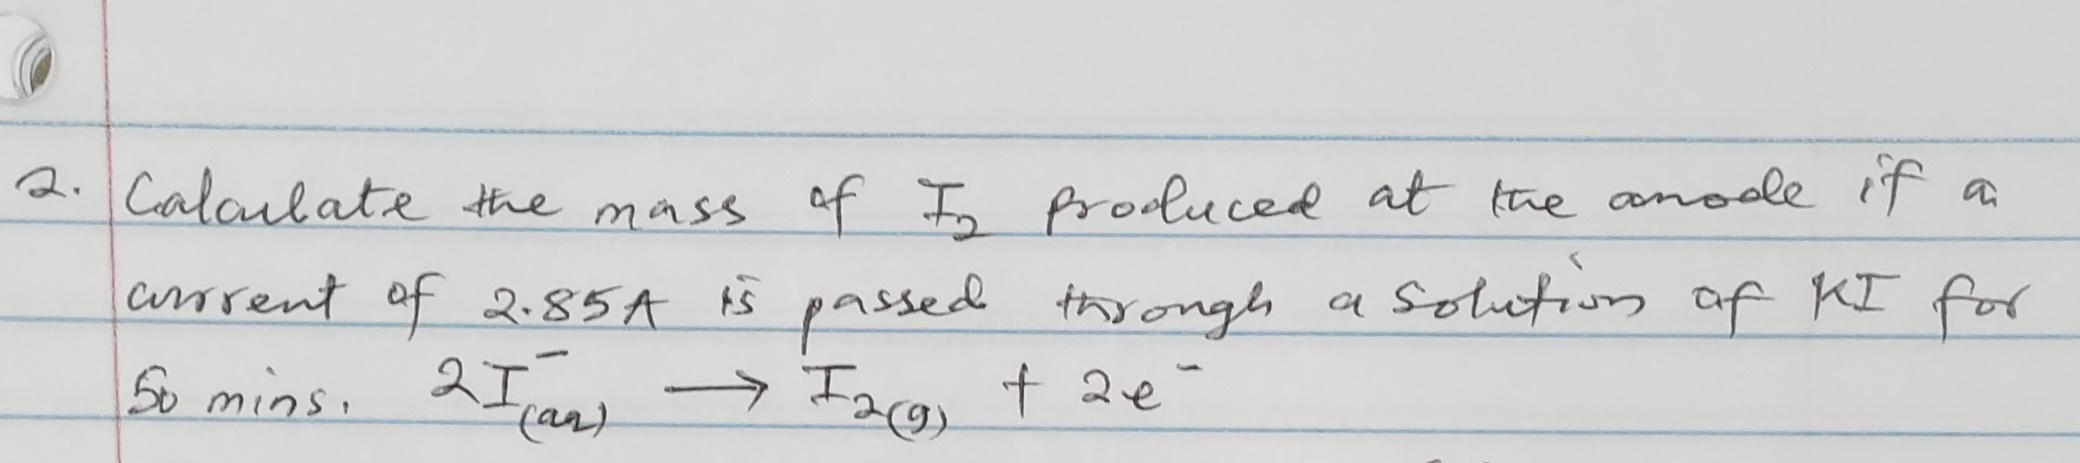 2. Calculate the mass of I₂ produced at the anode if a
current of 2.85A is passed through a solution of KI for
50 mins. 2I⁻(aq) → I₂(g) + 2e⁻